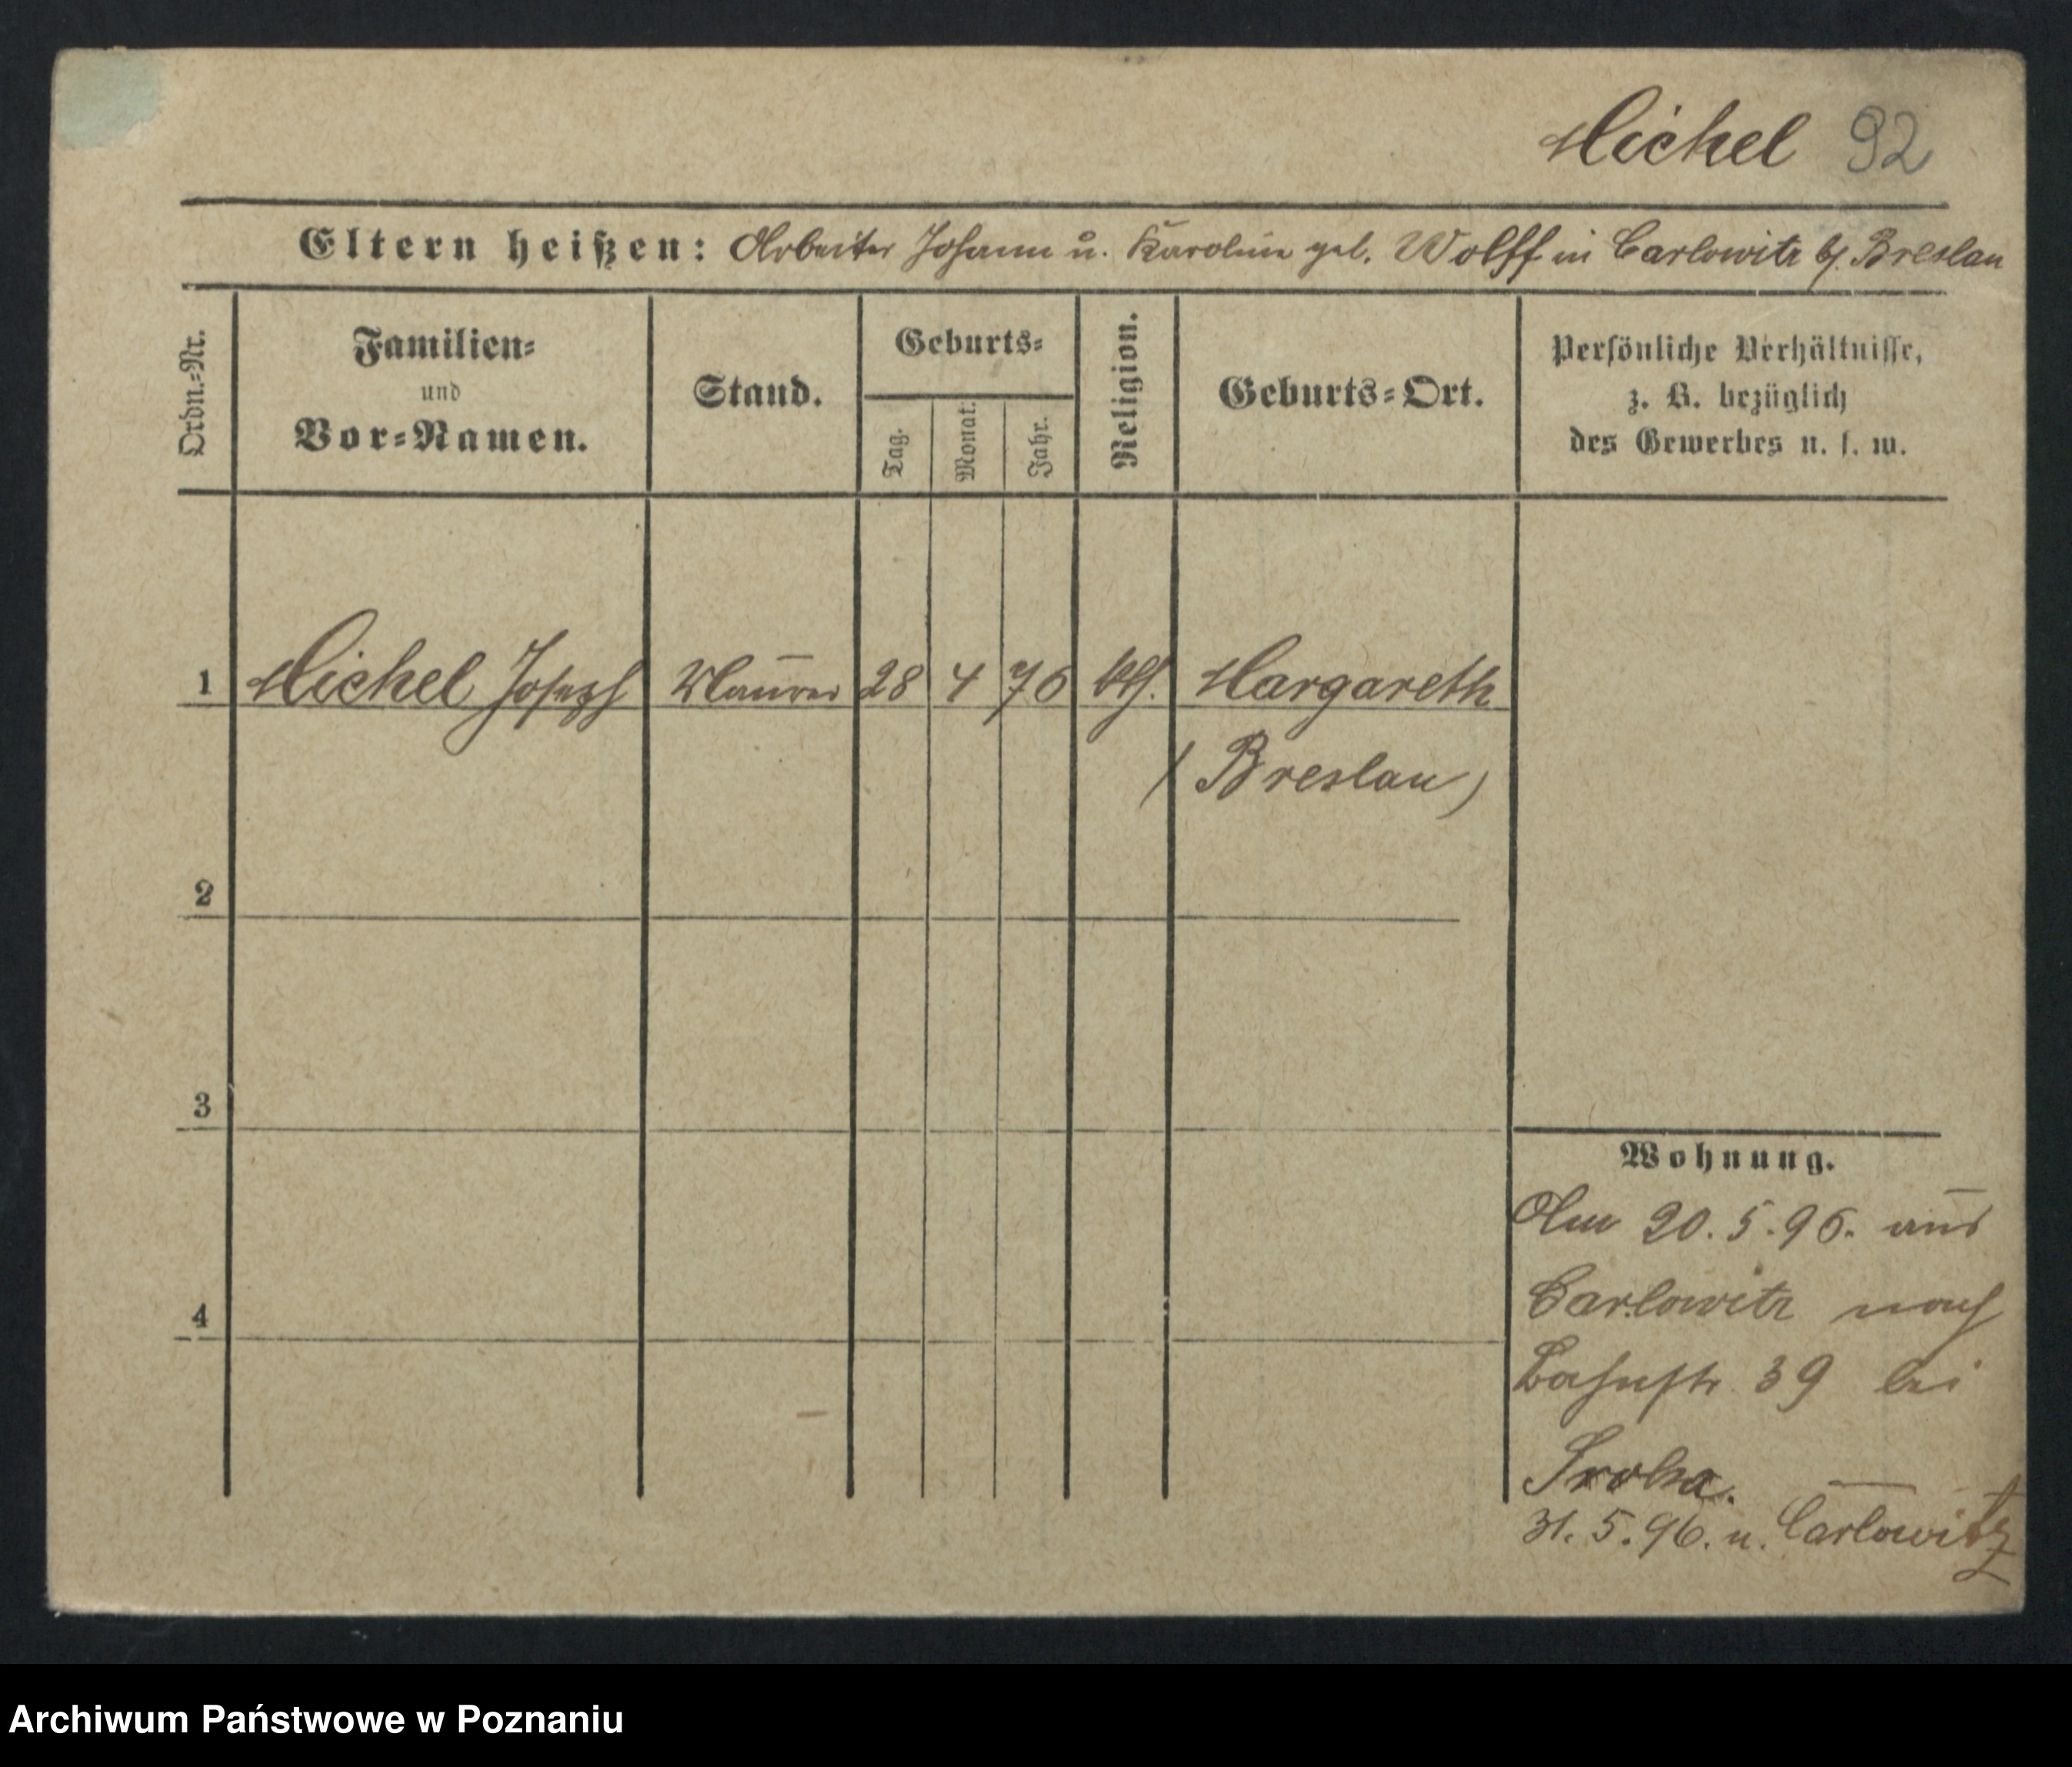 Michel 92
Eltern heißen: Arbeiter Johann u. Karoline geb. Wolff in Carlowitz b/. Breslau
Ordn.-Nr.
Familien-
und
Vor-Namen.
Stand.
Geburts-
Tag.
Monat.
Jahr.
Religion.
Geburts-Ort.
Persönliche Verhältnisse,
z. B. bezüglich
des Gewerbes u. s. w.
1 Michel Joseph Maurer 28 4 76 kth. Margareth
(Breslau)
2
3
4
Wohnung.
Am 20.5.96. aus
Carlowitz nach
Bahnstr. 39 bei
31.5.96. n. Carlowitz
Archiwum Państwowe w Poznaniu